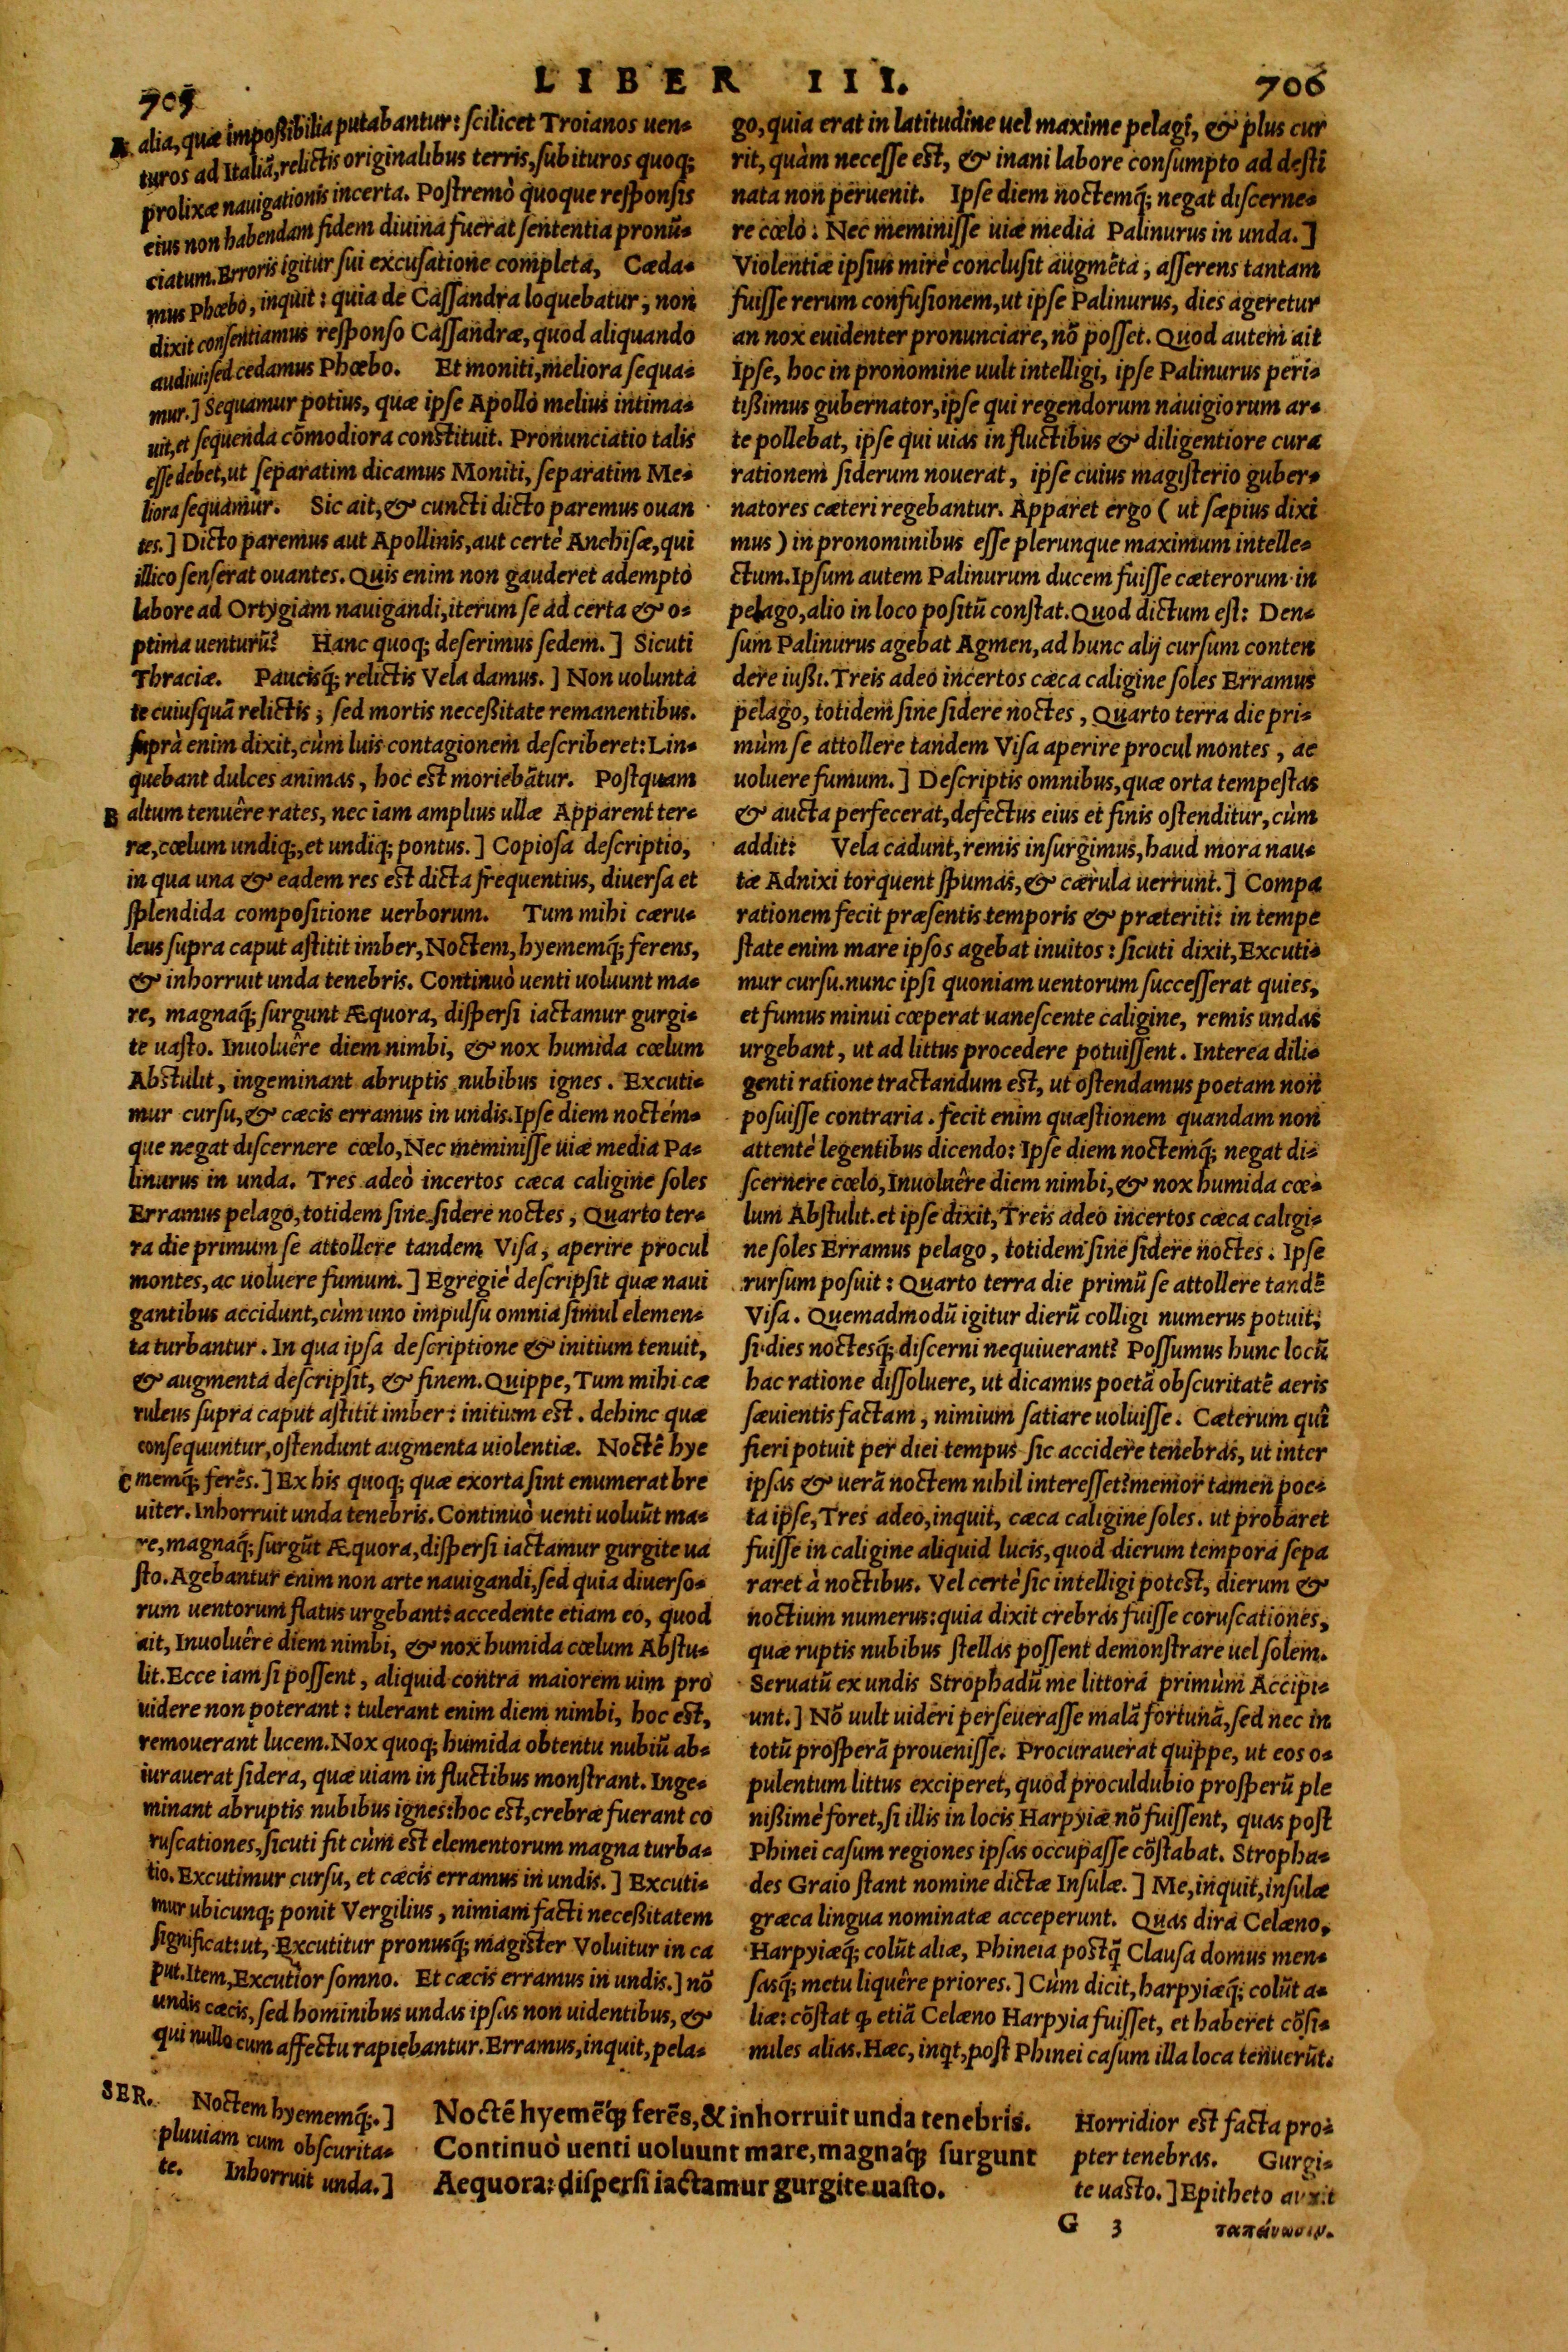 705 LIBER III. 706
A alia, quæ impoßibilia putabantur: scilicet Troianos uen-
turos ad Italiā, relictis originalibus terris, subituros quoq;
prolixæ nauigationis incerta. Postremò quoque responsis
eius non habendam fidem diuina fuerat sententia pronū-
ciatum. Erroris igitur sui excusatione completa, Cæda-
mus Phœbo, inquit: quia de Cassandra loquebatur, non
dixit consentiamus responso Cassandræ, quod aliquando
audiui: sed cedamus Phœbo. Et moniti, meliora sequa-
mur.] Sequamur potius, quæ ipse Apollo melius intima-
uit, et sequenda cōmodiora constituit. Pronunciatio talis
esse debet, ut separatim dicamus Moniti, separatim Me-
liora sequamur. Sic ait, & cuncti dicto paremus ouan
tes.] Dicto paremus aut Apollinis, aut certè Anchisæ, qui
illico senserat ouantes. Quis enim non gauderet adempto
labore ad Ortygiam nauigandi, iterum se ad certa & o-
ptima uenturū? Hanc quoq; deserimus sedem.] Sicuti
Thraciæ. Paucisq́; relictis Vela damus.] Non uolunta
te cuiusquā relictis; sed mortis neceßitate remanentibus.
suprà enim dixit, cùm luis contagionem describeret: Lin-
quebant dulces animas, hoc est moriebātur. Postquam
B altum tenuêre rates, nec iam amplius ullæ Apparent ter-
ræ, cœlum undiq;, et undiq; pontus.] Copiosa descriptio,
in qua una & eadem res est dicta frequentius, diuersa et
splendida compositione uerborum. Tum mihi cæru-
leus supra caput astitit imber, Noctem, hyememq́; ferens,
& inhorruit unda tenebris. Continuò uenti uoluunt ma-
re, magnaq́; surgunt Æquora, dispersi iactamur gurgi-
te uasto. Inuoluêre diem nimbi, & nox humida cœlum
Abstulit, ingeminant abruptis nubibus ignes. Excuti-
mur cursu, & cæcis erramus in undis. Ipse diem noctém-
que negat discernere cœlo, Nec meminisse uiæ media Pa-
linurus in unda. Tres adeò incertos cæca caligine soles
Erramus pelago, totidem sine sidere noctes, Quarto ter-
ra die primum se attollere tandem Visa, aperire procul
montes, ac uoluere fumum.] Egregiè descripsit quæ naui
gantibus accidunt, cùm uno impulsu omnia simul elemen-
ta turbantur. In qua ipsa descriptione & initium tenuit,
& augmenta descripsit, & finem. Quippe, Tum mihi cæ
ruleus supra caput astitit imber: initium est. dehinc quæ
consequuntur, ostendunt augmenta uiolentiæ. Noctē hye
C memq́; ferēs.] Ex his quoq; quæ exorta sint enumerat bre
uiter. Inhorruit unda tenebris. Continuò uenti uoluūt ma-
re, magnaq́; surgūt Æquora, dispersi iactamur gurgite ua
sto. Agebantur enim non arte nauigandi, sed quia diuerso-
rum uentorum flatus urgebant: accedente etiam eo, quod
ait, Inuoluêre diem nimbi, & nox humida cœlum Abstu-
lit. Ecce iam si possent, aliquid contra maiorem uim pro
uidere non poterant: tulerant enim diem nimbi, hoc est,
remouerant lucem. Nox quoq; humida obtentu nubiū ab-
iurauerat sidera, quæ uiam in fluctibus monstrant. Inge-
minant abruptis nubibus ignes: hoc est, crebræ fuerant co
ruscationes, sicuti fit cùm est elementorum magna turba-
tio. Excutimur cursu, et cæcis erramus in undis.] Excuti-
mur ubicunq; ponit Vergilius, nimiam facti neceßitatem
significat: ut, Excutitur pronusq́; magister Voluitur in ca
put. Item, Excutior somno. Et cæcis erramus in undis.] nō
undis cæcis, sed hominibus undas ipsas non uidentibus, &
qui nullo cum affectu rapiebantur. Erramus, inquit, pela-
go, quia erat in latitudine uel maxime pelagi, & plus cur
rit, quàm necesse est, & inani labore consumpto ad desti
nata non peruenit. Ipse diem noctemq́; negat discerne-
re cœlo: Nec meminisse uiæ media Palinurus in unda.]
Violentiæ ipsius mirè conclusit augmēta, asserens tantam
fuisse rerum confusionem, ut ipse Palinurus, dies ageretur
an nox euidenter pronunciare, nō posset. Quod autem ait
Ipse, hoc in pronomine uult intelligi, ipse Palinurus peri-
tißimus gubernator, ipse qui regendorum nauigiorum ar-
te pollebat, ipse qui uias in fluctibus & diligentiore cura
rationem siderum nouerat, ipse cuius magisterio guber-
natores cæteri regebantur. Apparet ergo ( ut sæpius dixi
mus ) in pronominibus esse plerunque maximum intelle-
ctum. Ipsum autem Palinurum ducem fuisse cæterorum in
pelago, alio in loco positū constat. Quod dictum est: Den-
sum Palinurus agebat Agmen, ad hunc alij cursum conten
dere iußi. Treis adeo incertos cæca caligine soles Erramus
pelago, totidem sine sidere noctes, Quarto terra die pri-
mùm se attollere tandem Visa aperire procul montes, ac
uoluere fumum.] Descriptis omnibus, quæ orta tempestas
& aucta perfecerat, defectus eius et finis ostenditur, cùm
addit: Vela cadunt, remis insurgimus, haud mora nau-
tæ Adnixi torquent spumas, & cærula uerrunt.] Compa
rationem fecit præsentis temporis & præteriti: in tempe
state enim mare ipsos agebat inuitos: sicuti dixit, Excuti-
mur cursu. nunc ipsi quoniam uentorum successerat quies,
et fumus minui cœperat uanescente caligine, remis undas
urgebant, ut ad littus procedere potuissent. Interea dili-
genti ratione tractandum est, ut ostendamus poetam non
posuisse contraria. fecit enim quæstionem quandam non
attentè legentibus dicendo: Ipse diem noctemq́; negat di-
scernere cœlo, Inuoluêre diem nimbi, & nox humida cœ-
lum Abstulit. et ipse dixit, Treis adeo incertos cæca caligi-
ne soles Erramus pelago, totidem sine sidere noctes. Ipse
rursum posuit: Quarto terra die primū se attollere tandē
Visa. Quemadmodū igitur dierū colligi numerus potuit,
si dies noctesq́; discerni nequiuerant? Possumus hunc locū
hac ratione dissoluere, ut dicamus poetā obscuritatē aeris
sæuientis factam, nimium satiare uoluisse. Cæterum quî
fieri potuit per diei tempus sic accidere tenebras, ut inter
ipsas & uerā noctem nihil interesset? memor tamen poe-
ta ipse, Tres adeo, inquit, cæca caligine soles. ut probaret
fuisse in caligine aliquid lucis, quod dierum tempora sepa
raret à noctibus. Vel certè sic intelligi potest, dierum &
noctium numerus: quia dixit crebras fuisse coruscationes,
quæ ruptis nubibus stellas possent demonstrare uel solem.
Seruatū ex undis Strophadū me littora primùm Accipi-
unt.] Nō uult uideri perseuerasse malā fortunā, sed nec in
totū prosperā prouenisse. Procurauerat quippe, ut eos o-
pulentum littus exciperet, quod proculdubio prosperū ple
nißimè foret, si illis in locis Harpyiæ nō fuissent, quas post
Phinei casum regiones ipsas occupasse cōstabat. Stropha-
des Graio stant nomine dictæ Insulæ.] Me, inquit, insulæ
græca lingua nominatæ acceperunt. Quas dira Celæno,
Harpyiæq́; colūt aliæ, Phineia postq̄ Clausa domus men-
sasq́; metu liquêre priores.] Cùm dicit, harpyiæq́; colūt a-
liæ: cōstat ꝙ etiā Celæno Harpyia fuisset, et haberet cōsi-
miles alias. Hæc, inqt, post Phinei casum illa loca tenuerūt.
SER. Noctem hyememq́;.]
pluuiam cum obscurita-
te. Inhorruit unda.]
Noctē hyemēq́; ferēs, & inhorruit unda tenebris.
Continuò uenti uoluunt mare, magnaq́; surgunt
Aequora: dispersi iactamur gurgite uasto.
Horridior est facta pro-
pter tenebras. Gurgi-
te uasto.] Epitheto auxit
G 3 ταπείνωσιν.